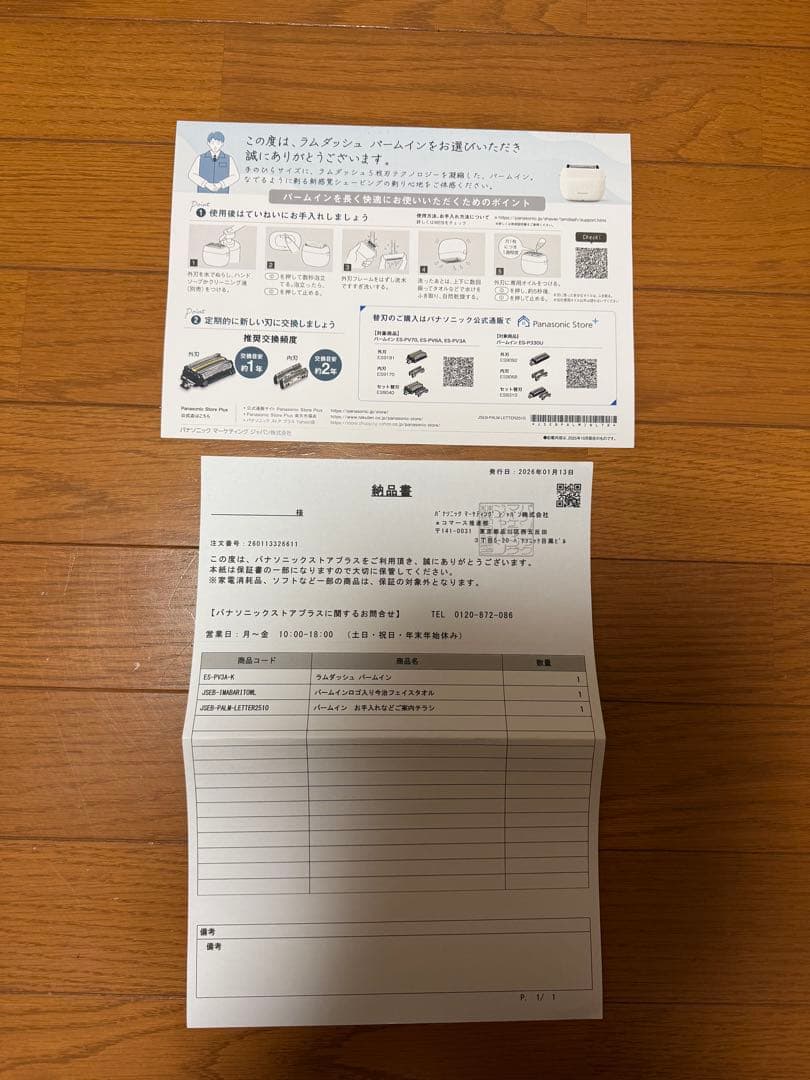 この度は、ラムダッシュ パームインをお選びいただき
誠にありがとうございます。
手のひらサイズに、ラムダッシュ5枚刃テクノロジーを凝縮した、パームイン。
なでるように剃る新感覚シェービングの剃り心地をご体感ください。
パームインを長く快適にお使いいただくためのポイント
Point
1 使用後はていねいにお手入れしましょう
使用方法、お手入れ方法について
詳しくはWEBをチェック
https://panasonic.jp/shaver/lamdash/support.html
Check!
1
外刃を水でぬらし、ハンド
ソープかクリーニング液
(別売)をつける。
2
を押して数秒泡立
てる。泡立ったら、
を押して止める。
3
外刃フレームをはずし流水
ですすぎ洗いする。
4
洗ったあとは、上下に数回
振ってタオルなどで水けを
ふき取り、自然乾燥する。
5
外刃に専用オイルをつける。
を押し、約5秒後、
を押して止める。
Point
2 定期的に新しい刃に交換しましょう
推奨交換頻度
外刃
交換目安
約1年
内刃
交換目安
約2年
替刃のご購入はパナソニック公式通販で
Panasonic Store+
【対象商品】
パームイン ES-PV70, ES-PV6A, ES-PV3A
外刃
ES9191
内刃
ES9170
セット替刃
ES9040
【対象商品】
パームイン ES-P330U
外刃
ES9092
内刃
ES9068
セット替刃
ES9013
Panasonic Store Plus
公式店はこちら
・公式通販サイト Panasonic Store Plus
https://panasonic.jp/store/
・Panasonic Store Plus 楽天市場店
https://www.rakuten.co.jp/panasonic-store/
・パナソニック ストア プラス Yahoo!店
https://store.shopping.yahoo.co.jp/panasonic-store/
パナソニック マーケティング ジャパン株式会社
JSEB-PALM-LETTER2510
●記載内容は、2025年10月現在のものです。
発行日:2026年01月13日
納品書
様
パナソニック マーケティング ジャパン株式会社
eコマース推進部
〒141-0031 東京都品川区西五反田
3丁目5-20 パナソニック目黒ビル
注文番号:260113326611
この度は、パナソニックストアプラスをご利用頂き、誠にありがとうございます。
本紙は保証書の一部になりますので大切に保管してください。
※家電消耗品、ソフトなど一部の商品は、保証の対象外となります。
【パナソニックストアプラスに関するお問合せ】 TEL 0120-872-086
営業日:月~金 10:00-18:00 (土日・祝日・年末年始休み)
商品コード 商品名 数量
ES-PV3A-K ラムダッシュ パームイン 1
JSEB-IMABARITOWL パームインロゴ入り今治フェイスタオル 1
JSEB-PALM-LETTER2510 パームイン お手入れなどご案内チラシ 1
備考
備考
P. 1/ 1